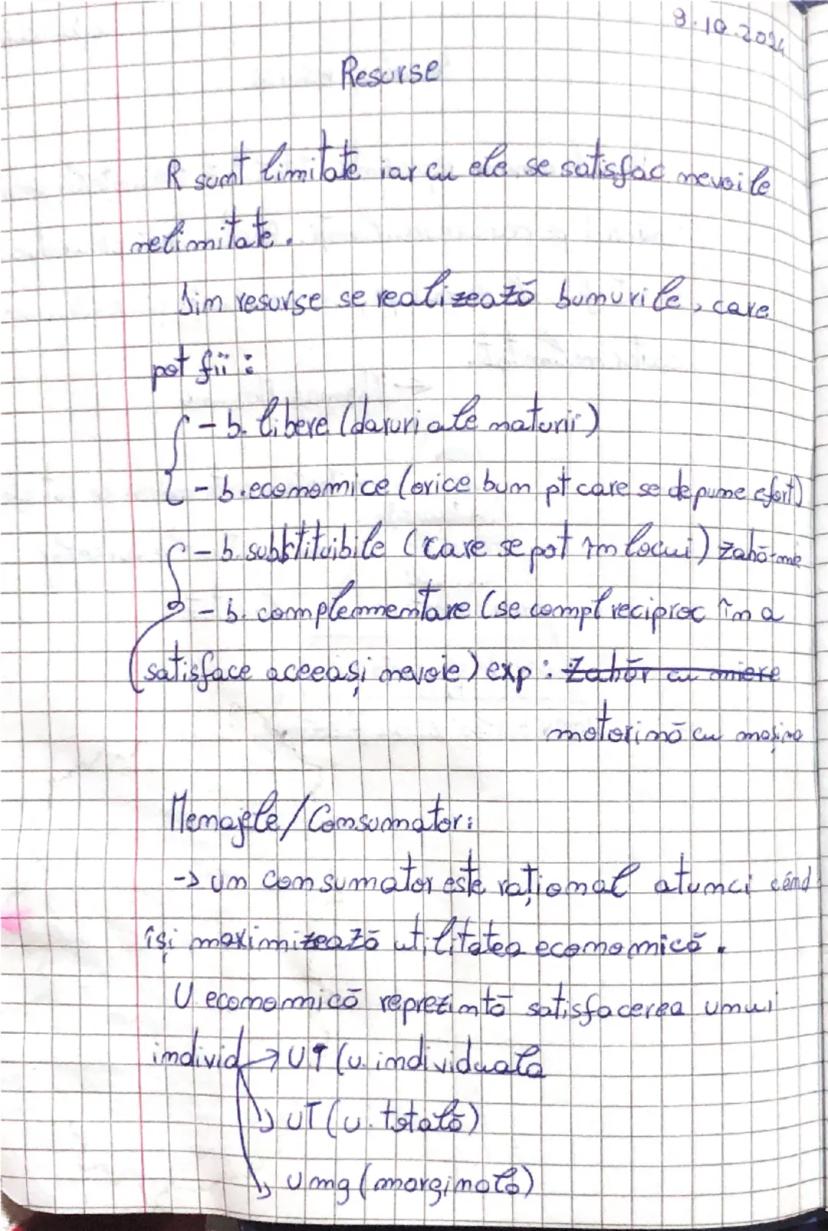 9.10.2024
Resurse
R sunt limitate iar cu ele se satisfac nevoile
nelimitate.
Din resurse se realizează bunurile, care
pot fii :
- b. libere (daruri ale naturii)
- b. economice (orice bun pt care se depune efort)
- b. subtituibile (care se pot în locui) zahăr-me
- b. complementare (se compl reciproc în a
satisface aceeași nevoie) exp : Zahăr cu miere
motorină cu mașina
Menajele/Consumator:
-> un consumator este rațional atunci când
își maximizează utilitatea economică.
U economică reprezintă satisfacerea unui
individ -> UI (u. individuala
UT (u. totală)
Umg (marginală)